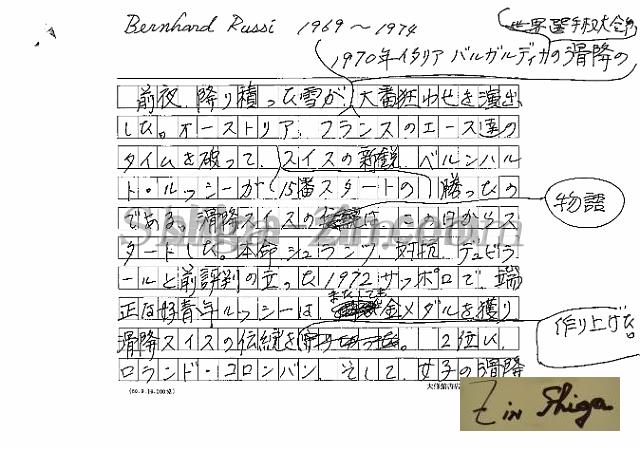 Bernhard Russi 1969～1974
世界選手権大会
1970年イタリア バルガルディナの滑降の
前夜、降り積った雪が、大番狂わせを演出
した。オーストリア、フランスのエース達の
タイムを破って、スイスの新鋭、ベルンハル
ト・ルッシーが15番スタートの 勝ったの
物語
である。滑降スイスの は、この日からス
タートした。本命、シュランツ、対抗、デュビラ
ールと前評判の立った1972サッポロで、端
正な好青年ルッシーは、またしても金メダルを獲り
作り上げた。
滑降スイスの伝統を 。2位に、
ロランド・コロンバン、そして、女子の滑降
(60.9.10.200冊)
大修館書店
Shiga-Zin.com
Z in Shiga